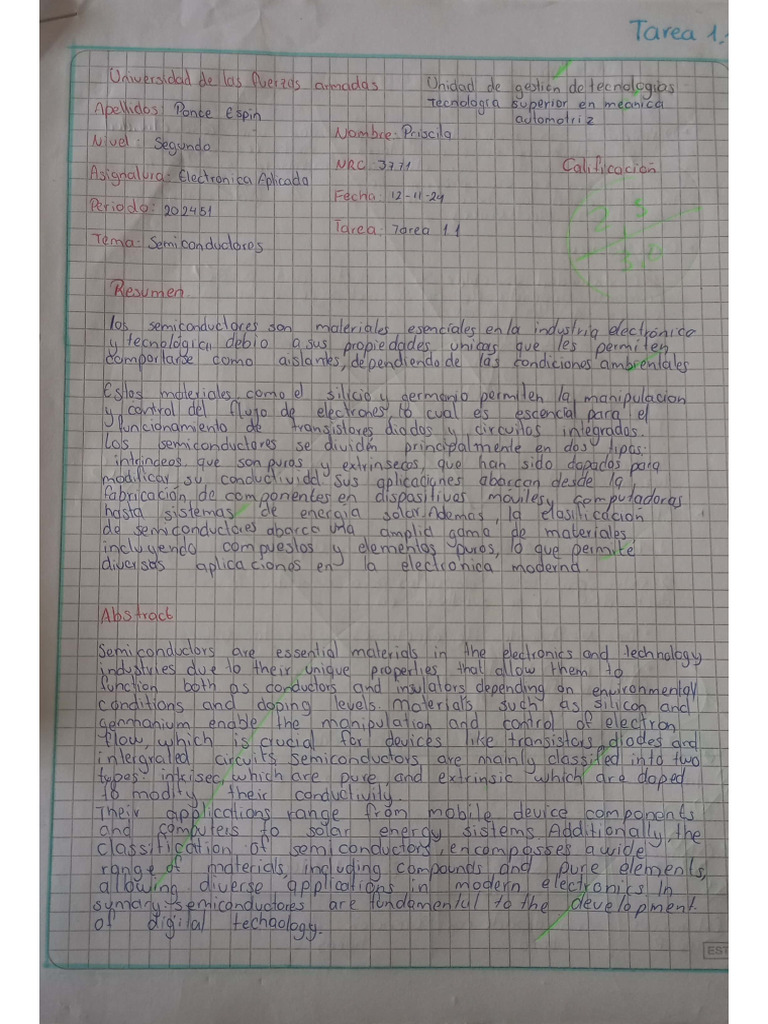 Tarea 1.
Universidad de las fuerzas armadas
Unidad de gestión de tecnologías
Tecnología superior en mecanica
automotriz
Apellidos: Ponce Espin
Nombre: Priscila
Nivel: Segundo
NRC: 3771
Calificación
Asignatura: Electronica Aplicada
Fecha: 12-11-24
Periodo: 202451
Tarea: Tarea 1.1
Tema: Semiconductores
Resumen
los semiconductores son materiales esenciales en la industria electrónica
y tecnológica debio a sus propiedades unicas que les permiten
comportarse como aislantes, dependiendo de las condiciones ambientales
Estos materiales, como el silicio y germanio permiten la manipulacion
y control del flujo de electrones, lo cual es escencial para el
funcionamiento de transistores diodos y circuitos integrados.
Los semiconductores se dividen principalmente en dos tipos:
intrinceos, que son puros y extrinsecos, que han sido dopados para
modificar su conductividd. Sus aplicaciones abarcan desde la
fabricación de componentes en dispositivos móviles y computadoras
hasta sistemas de energia solar. Ademas, la clasificación
de semiconductores abarca una amplia gama de materiales
incluyendo compuestos y elementos puros, lo que permite
diversas aplicaciones en la electronica moderna.
Abstract
Semiconductors are essential materials in the electronics and technology
industries due to their unique properties that allow them to
function both as conductors and insulators depending on environmental
conditions and doping levels. Materials such as silicon and
germanium enable the manipulation and control of electron
flow, which is crucial for devices like transistors, diodes and
intergraled circuits. Semiconductors are mainly classified into two
types: intrisec, which are pure, and extrinsic which are doped
to modify their conductivity.
Their applications range from mobile device components
and computers to solar energy sistems. Additionally, the
classification of semiconductors, encompasses a wide
range of materials, including compounds and pure elements,
allowing diverse applications in modern electronics. In
sumary: semiconductores are fundamental to the development
of digital technology.
EST